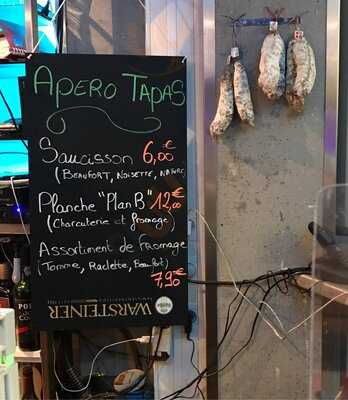 APERO TAPAS
Saucisson 6,00€
(BEAUFORT, NOISETTE, NATURE)
Planche "Plan B" 12,00€
(Charcuterie et fromage)
Assortiment de Fromage
(Tomme, Raclette, Beaufort)
7,90€
WARSTEINER